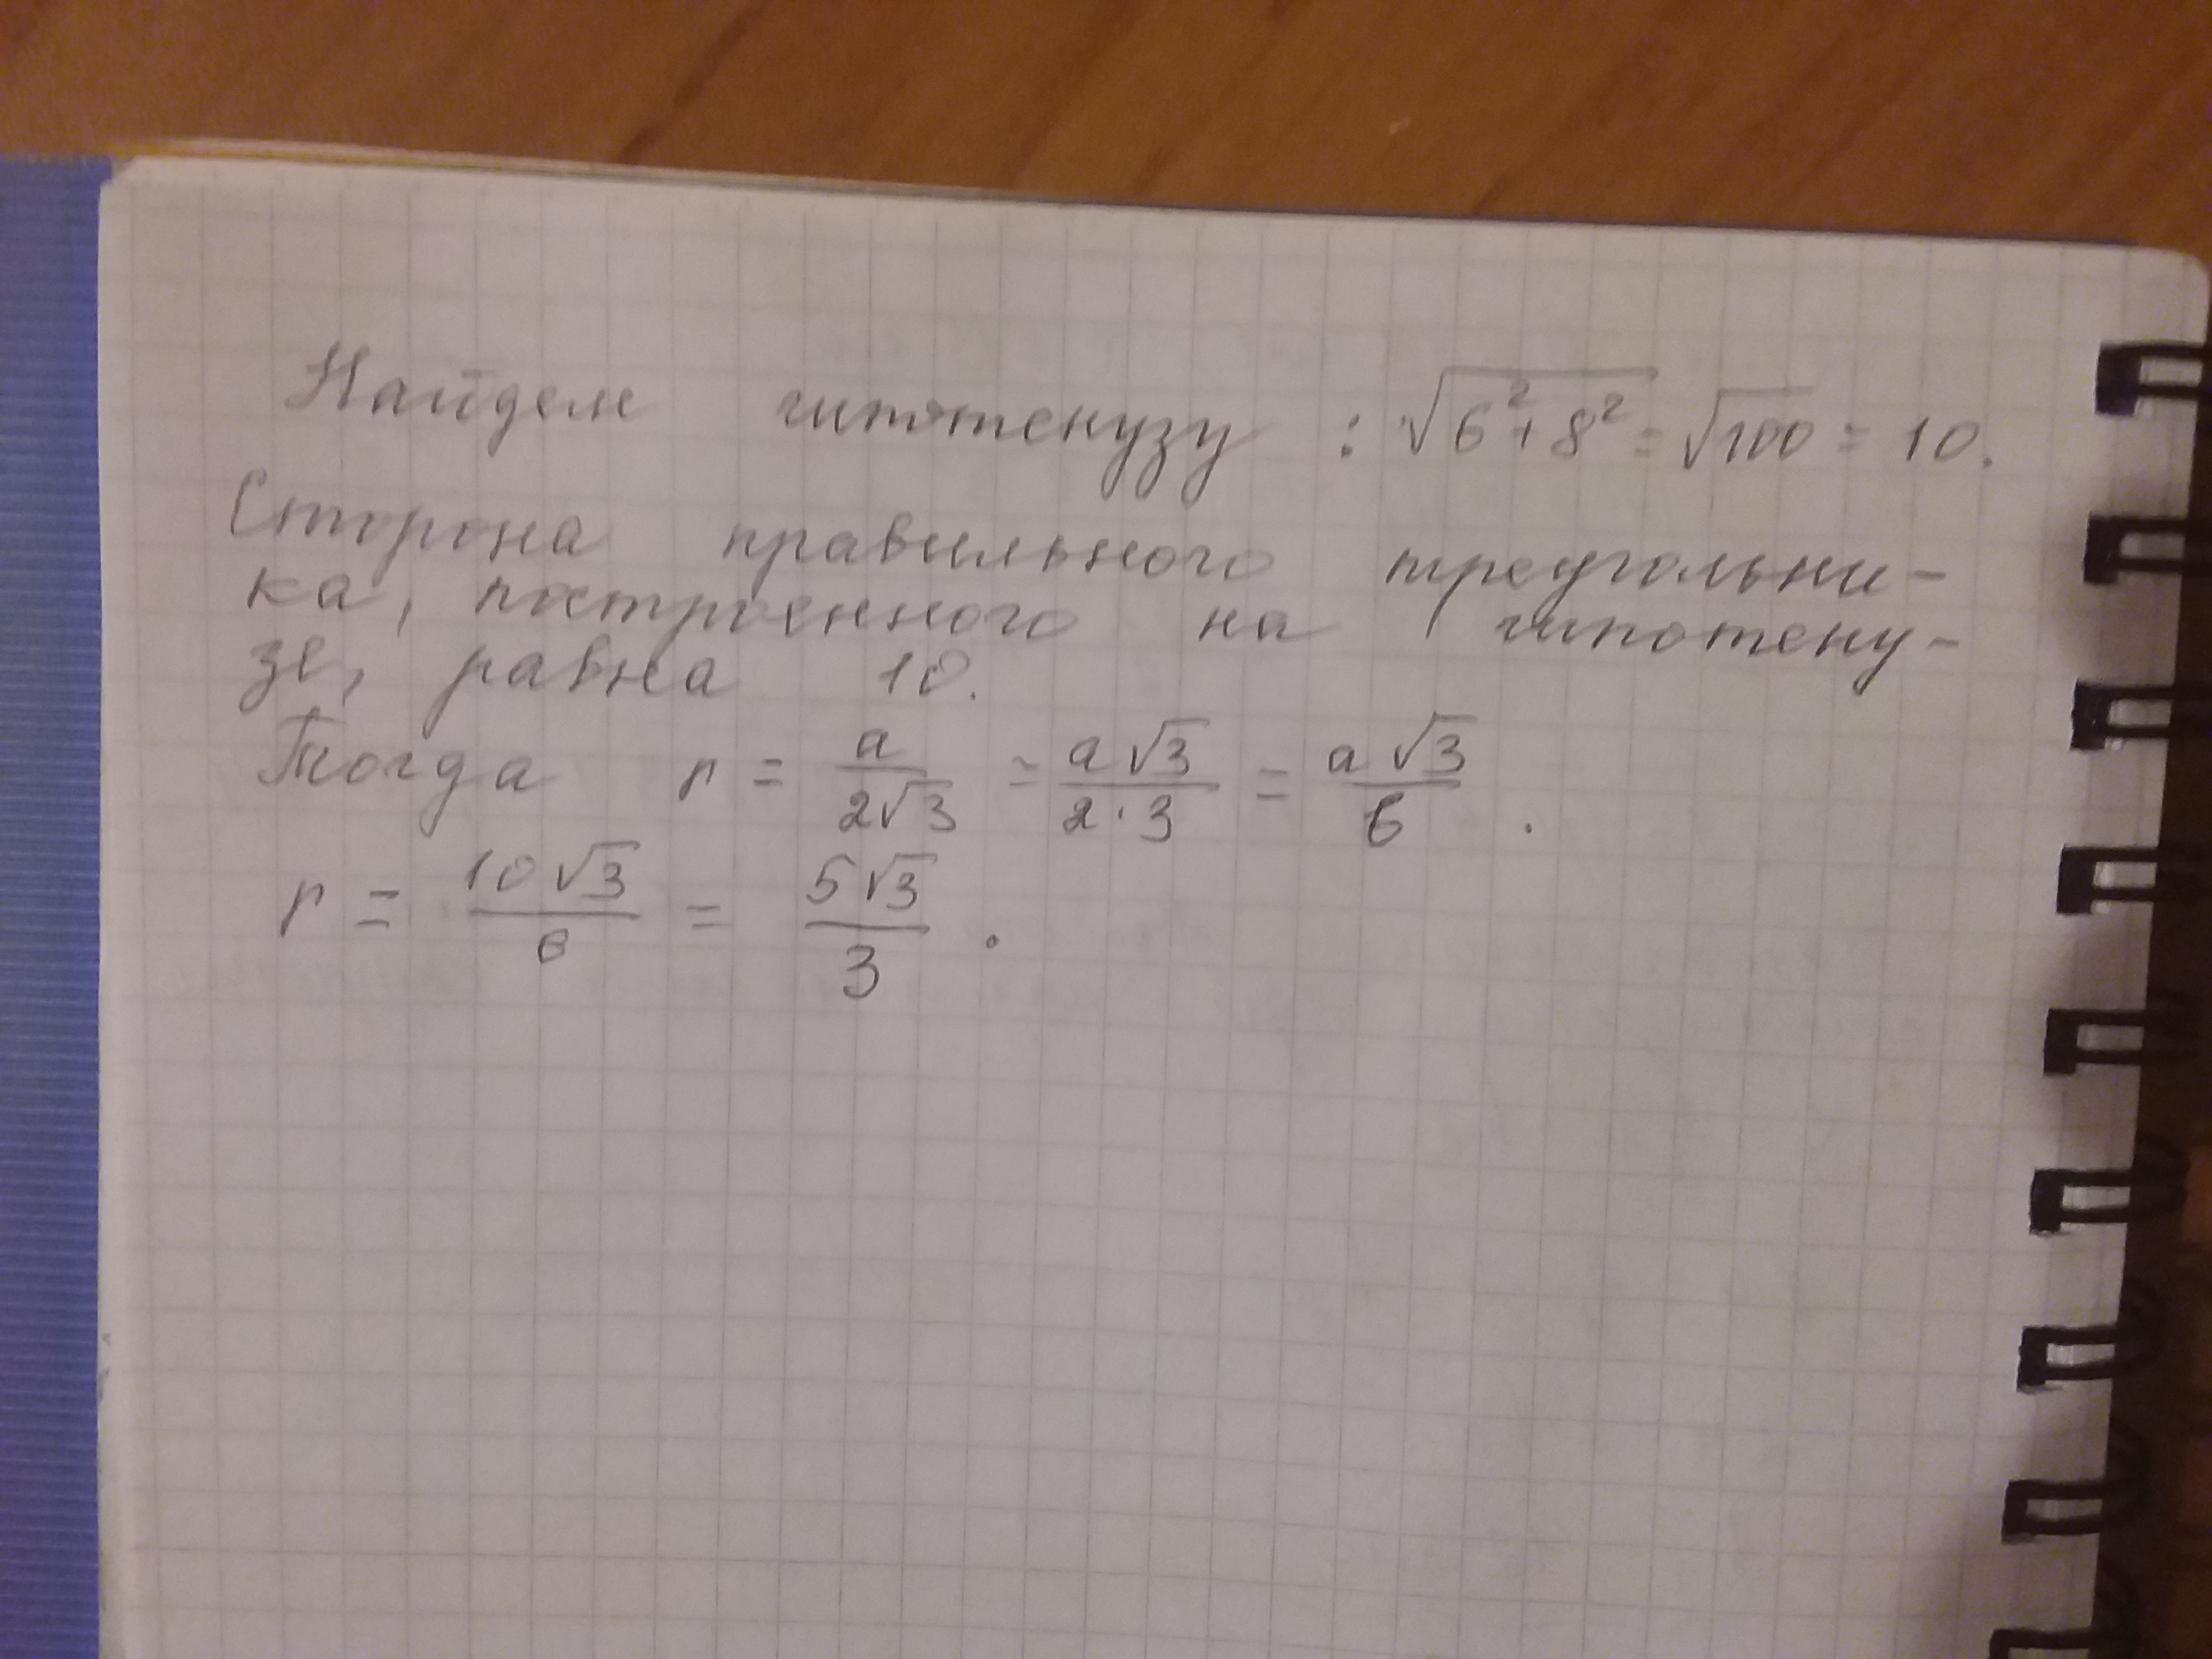 Найдем гипотенузу : √(6²+8²) = √100 = 10.
Сторона правильного треугольни-
ка, построенного на гипотену-
зе, равна 10.
Тогда r = a/(2√3) = a√3/(2·3) = a√3/6 .
r = 10√3/6 = 5√3/3 .